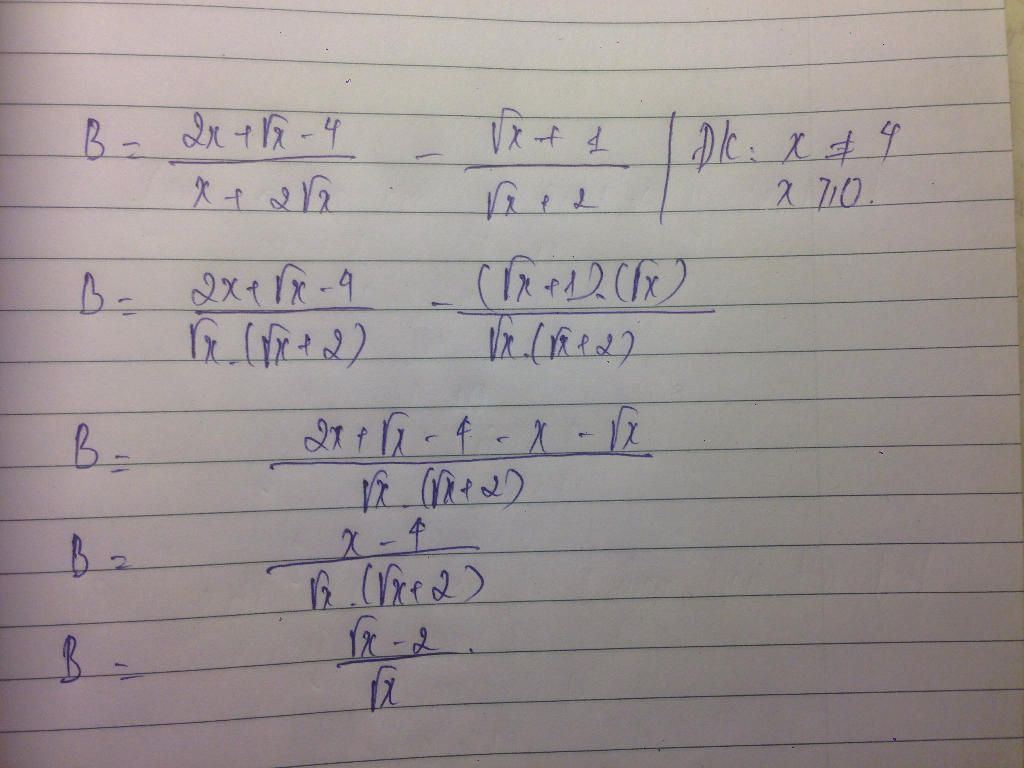 B = (2x + √x - 4)/(x + 2√x) - (√x + 1)/(√x + 2) | ĐK: x ≠ 4
x ≥ 0.
B = (2x + √x - 4)/(√x . (√x + 2)) - ((√x + 1).(√x))/(√x . (√x + 2))
B = (2x + √x - 4 - x - √x)/(√x . (√x + 2))
B = (x - 4)/(√x . (√x + 2))
B = (√x - 2)/(√x) .